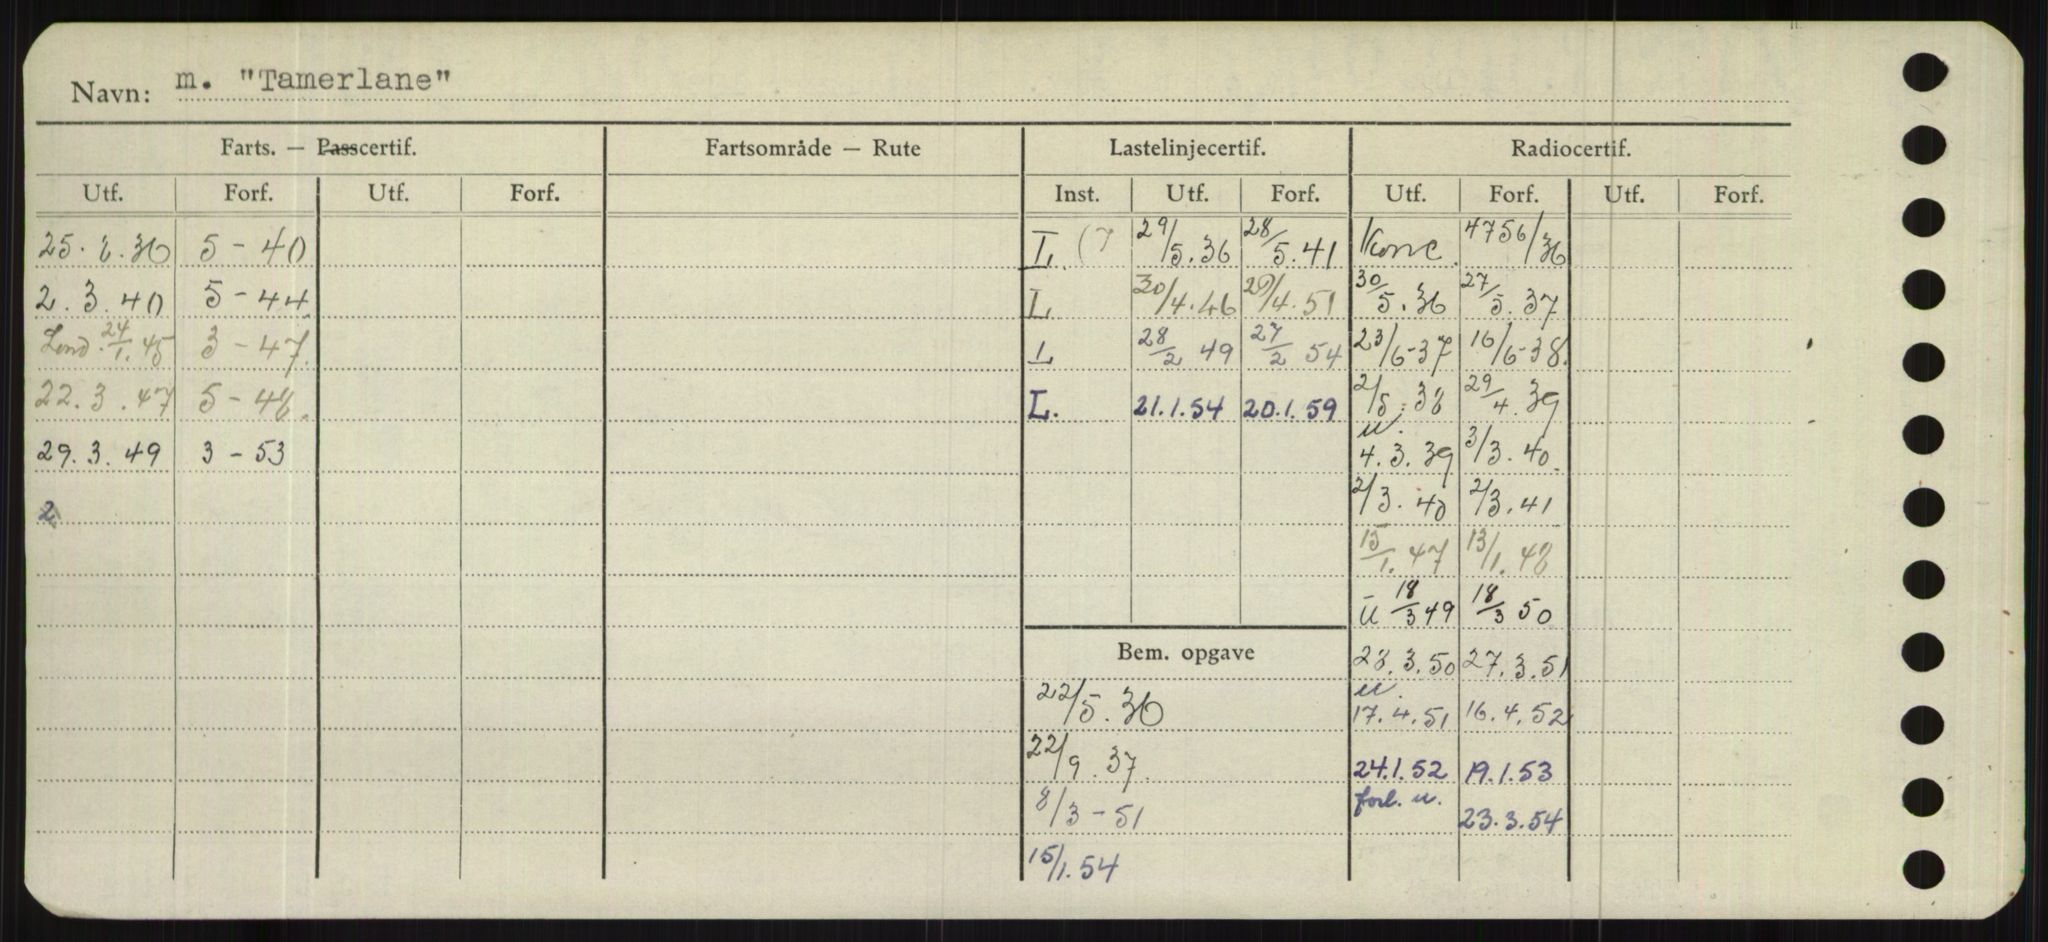 Navn: m. "Tamerlane"
Farts. — Passcertif. Fartsområde — Rute Lastelinjecertif. Radiocertif.
Utf. Forf. Utf. Forf. Inst. Utf. Forf. Utf. Forf. Utf. Forf.
25.2.36 5-40 L. 29/5.36 28/5.41 Konc. 4756/36
2.3.40 5-44. L 30/4.46 29/4.51 30/5.36 27/5.37
Lond. 24/1.45 3-47. L 28/2 49 27/2 54 23/6-37 16/6-38.
22.3.47 5-48. L. 21.1.54 20.1.59 2/5.38 29/4.39
29.3.49 3-53 u. 4.3.39 3/3.40.
2 2/3.40 2/3.41
15/1.47 13/1.48
u 18/3 49 18/3 50
Bem. opgave 28.3.50 27.3.51
22/5.36 u. 17.4.51 16.4.52
22/9.37. 24.1.52 19.1.53
8/3-51 forl. u. 23.3.54
15/1.54